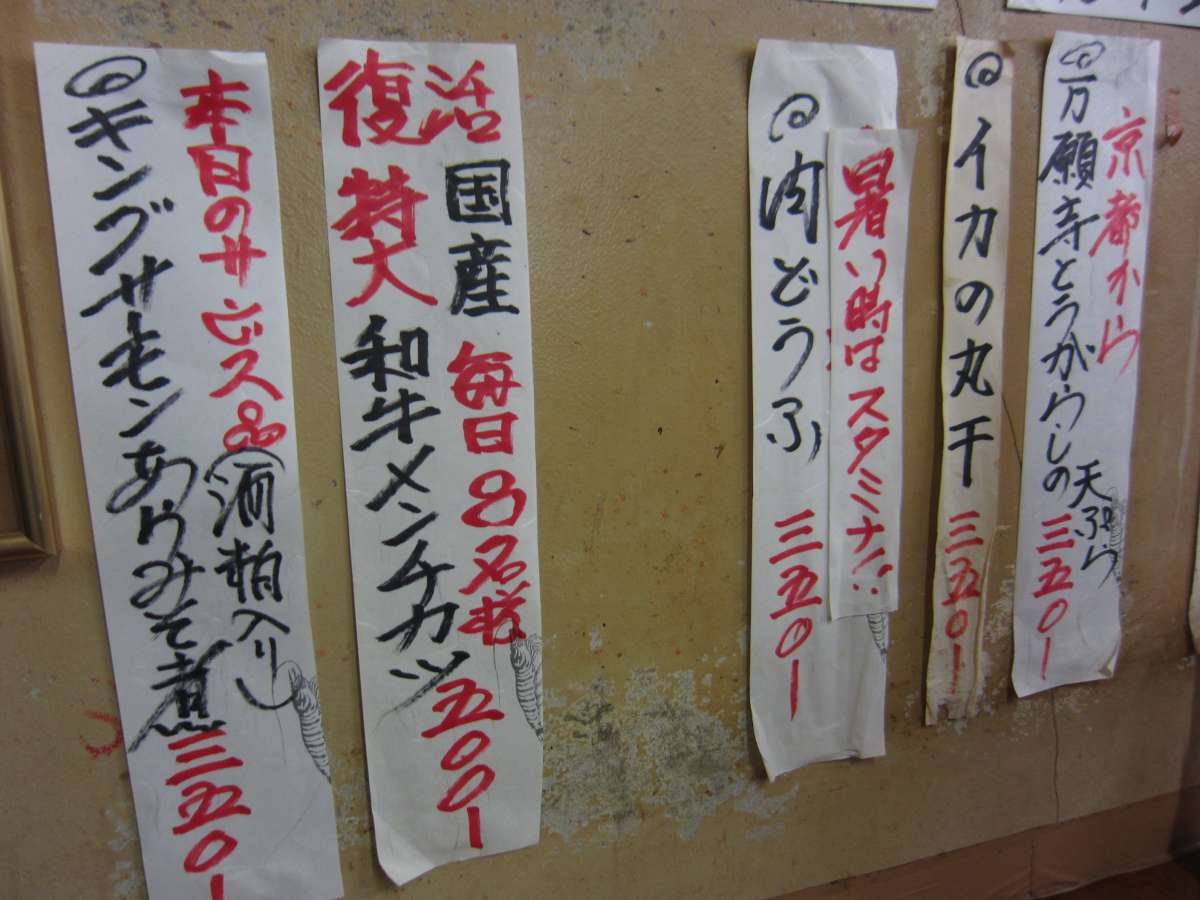 京都から
万願寺とうがらしの
天ぷら
三五〇ー
イカの丸干
三五〇ー
暑い時はスタミナ!!
肉どうふ
三五〇ー
復活
国産 毎日8名様
特大和牛メンチカツ
五〇〇ー
本日のサービス品
(酒粕入り)
キングサーモンあらみそ煮
三五〇ー